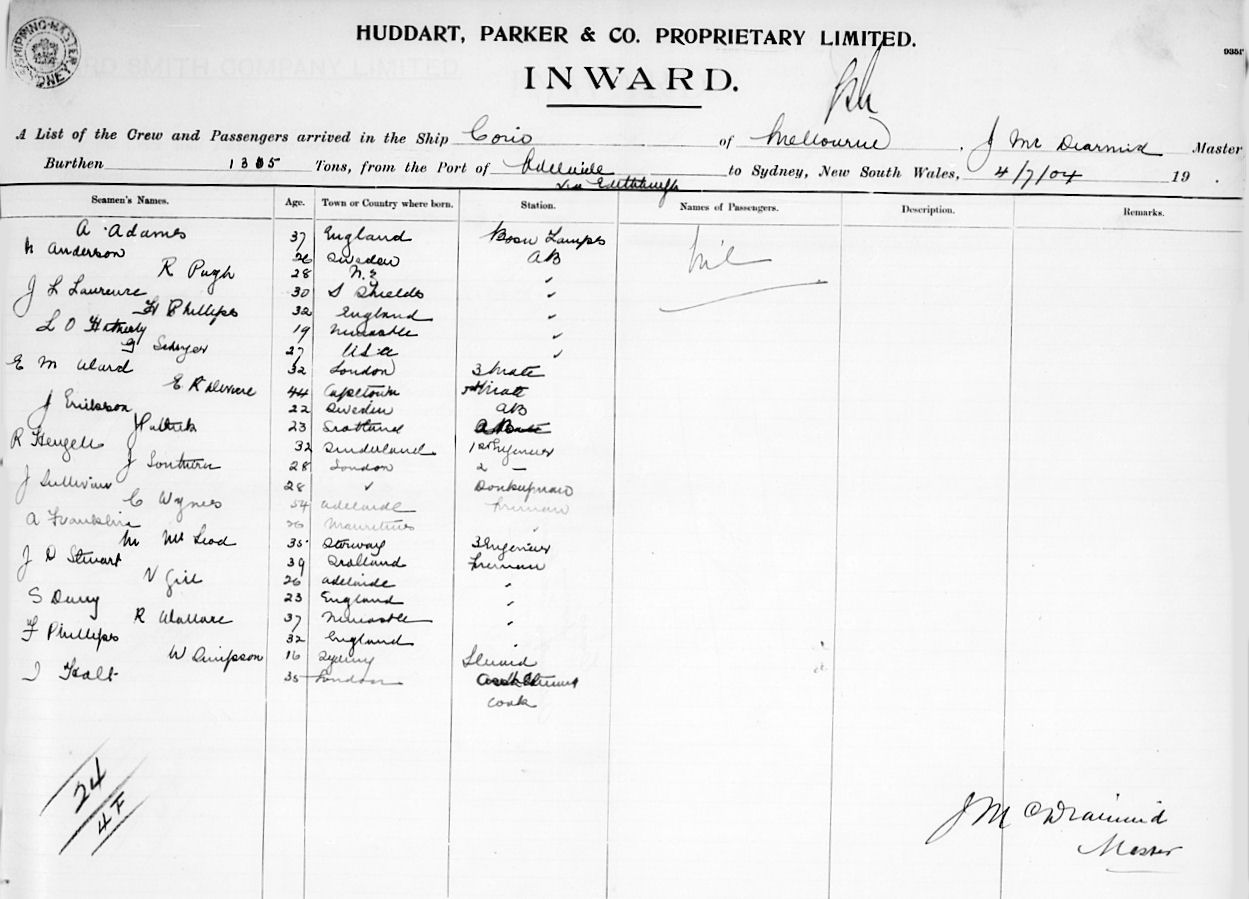 SHIPPING MASTER SYDNEY
HUDDART, PARKER & CO. PROPRIETARY LIMITED.
INWARD.
A List of the Crew and Passengers arrived in the Ship Corio of Melbourne, J Mc Diarmid Master
Burthen 1305 Tons, from the Port of Adelaide to Sydney, New South Wales, 4/7/04 19 .
via Edithburgh
Seamen's Names. Age. Town or Country where born. Station. Names of Passengers. Description. Remarks.
A Adams 37 England Bosn Lamps nil
N Anderson 26 Sweden AB
R Pugh 28 N.Z "
J L Laurence 30 S Shields "
H Phillips 32 England "
L O Hatherly 19 Newcastle "
27 U.S.A "
E M Ward 32 London 3 Mate
E R 44 Capetown Mate
J Erickson 22 Sweden AB
J 23 Scotland
R Hengell 32 Sunderland 1st Engineer
J Southern 28 London 2 —
J Sullivan 28 " Donkeyman
C Wynes 54 Adelaide Fireman
A Franklin 26 Mauritius "
M McLeod 35 3 Engineer
J D Stewart 39 Scotland Fireman
N Gill 26 Adelaide "
S 23 England "
R Wallace 37 Newcastle "
F Phillips 32 England "
W Simpson 16 Sydney Steward
J Holt 35 London
Cook
24
4 F
J Mc Diarmid
Master